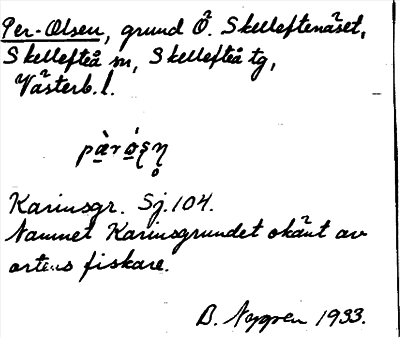 Per-Olsen, grund Ö. Skelleftenäset,
Skellefteå sn, Skellefteå tg,
Västerb. l.
Karinsgr. Sj. 104.
Namnet Karinsgrundet okänt av
ortens fiskare.
B. Nygren 1933.